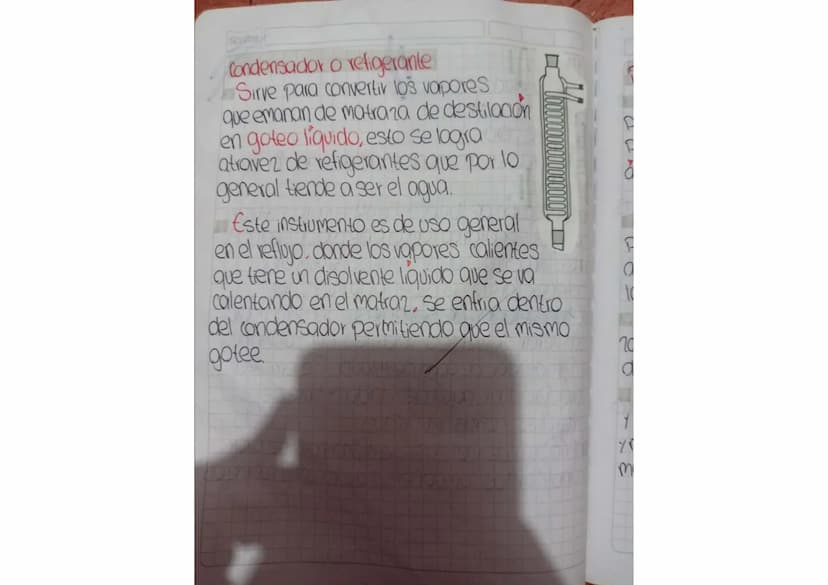 Condensador o refigerante
Sirve para convertir los vapores
que emanan de matraza de destilación
en goteo líquido, esto se logra
atravez de refigerantes que por lo
general tiende a ser el agua.
Este instrumento es de uso general
en el reflujo. donde los vapores calientes
que tiene un disolvente líquido que se va
calentando en el matraz. se enfria dentro
del condensador permitiendo que el mismo
gotee.